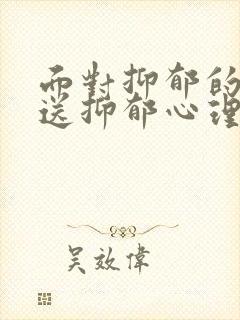 而對抑郁的
送抑郁心理
吴效偉